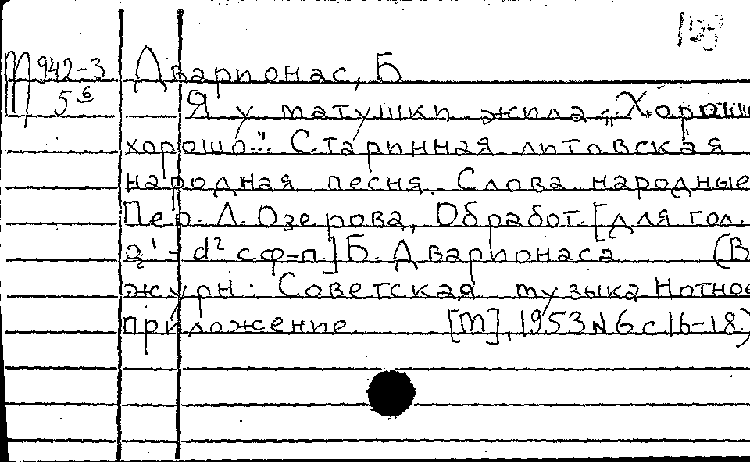 П 942-3 Дварионас, Б
5⁶ Я у матушки жила „Хорошо
хорошо". Старинная литовская
народная песня. Слова народные
Пер. Л. Озерова, Обработ. [для гол.
- d² с ф-п.] Б. Дварионаса (В
журн: Советская музыка Нотное
приложение [М], 1953 № 6 с 16-18)